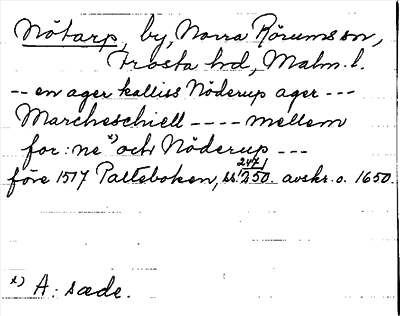 Nötarp, by, Norra Rörums sn,
Frosta hd, Malm. l.
-- en ager kalliss Nöderup ager ---
Marcheschiell ---- mellem
for: ne x) och Nöderup ---
före 1517 Palteboken, s. 247/250. avskr. o. 1650.
x) A: sæde.